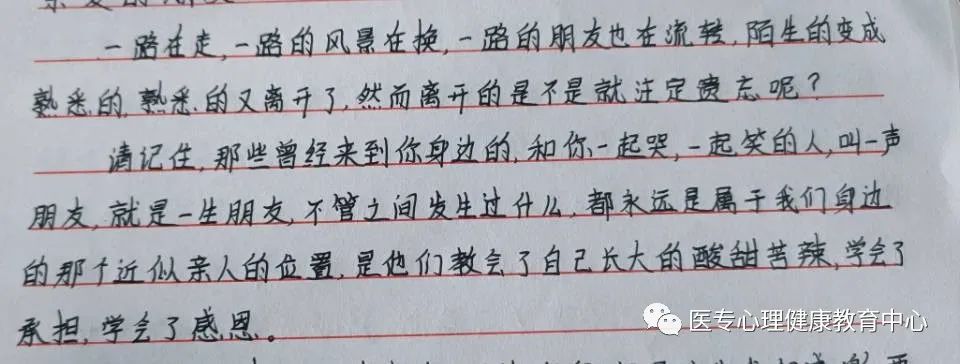 一路在走,一路的风景在换,一路的朋友也在流转,陌生的变成
熟悉的,熟悉的又离开了,然而离开的是不是就注定遗忘呢?
请记住,那些曾经来到你身边的,和你一起哭,一起笑的人,叫一声
朋友,就是一生朋友,不管之间发生过什么,都永远是属于我们身边
的那个近似亲人的位置,是他们教会了自己长大的酸甜苦辣,学会了
承担,学会了感恩。
医专心理健康教育中心